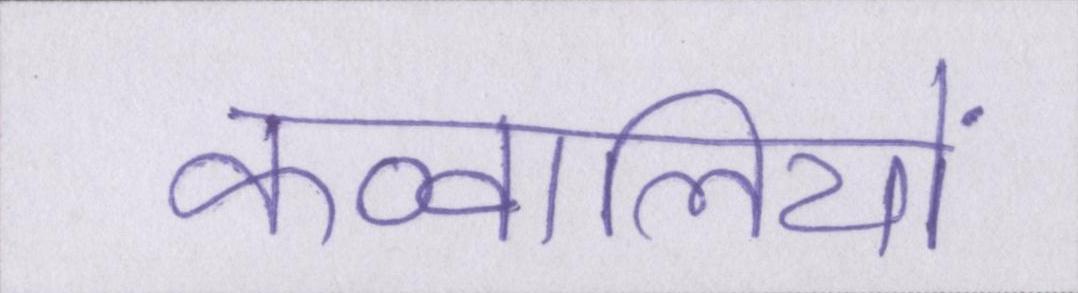 कव्वालियों